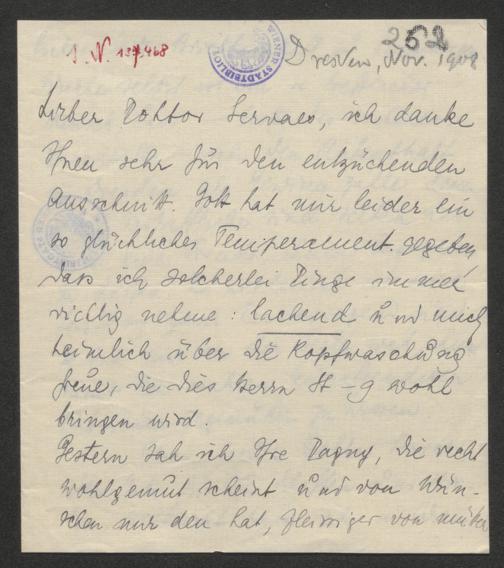 252
I. N. 137.468
WIENER STADTBIBLIOTHEK
Dresden, Nov. 1908
Lieber Doktor Servaes, ich danke
Ihnen sehr für den entzückenden
Ausschnitt. Gott hat mir leider ein
so glückliches Temperament gegeben
dass ich solcherlei Dinge immer
richtig nehme: lachend und mich
heimlich über die Kopfwaschung
freue, die dies Herrn St-g wohl
bringen wird.
Gestern sah ich Ihre Dagny, die recht
wohlgemut scheint und von Wün-
schen nur den hat, fleissiger von